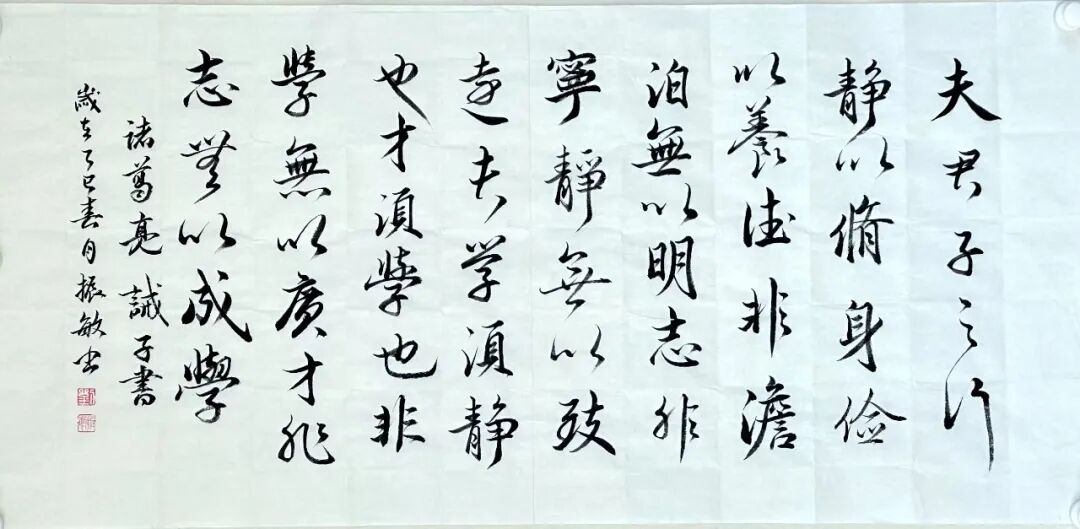 夫君子之行
静以脩身俭
以養德非澹
泊無以明志非
寧靜無以致
遠夫学須静
也才須學也非
學無以廣才非
志無以成學
諸葛亮誡子書
歲在乙巳春月振敏书